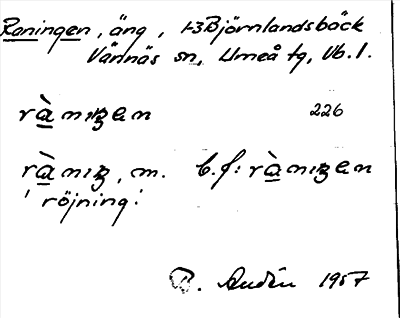 Raningen, äng, 1-3 Björnlandsbäck
Vännäs sn, Umeå tg, Vb. l.
rànıŋen 226
rànıŋ, m. b.f: rànıŋen
'röjning'
B. Audén 1957